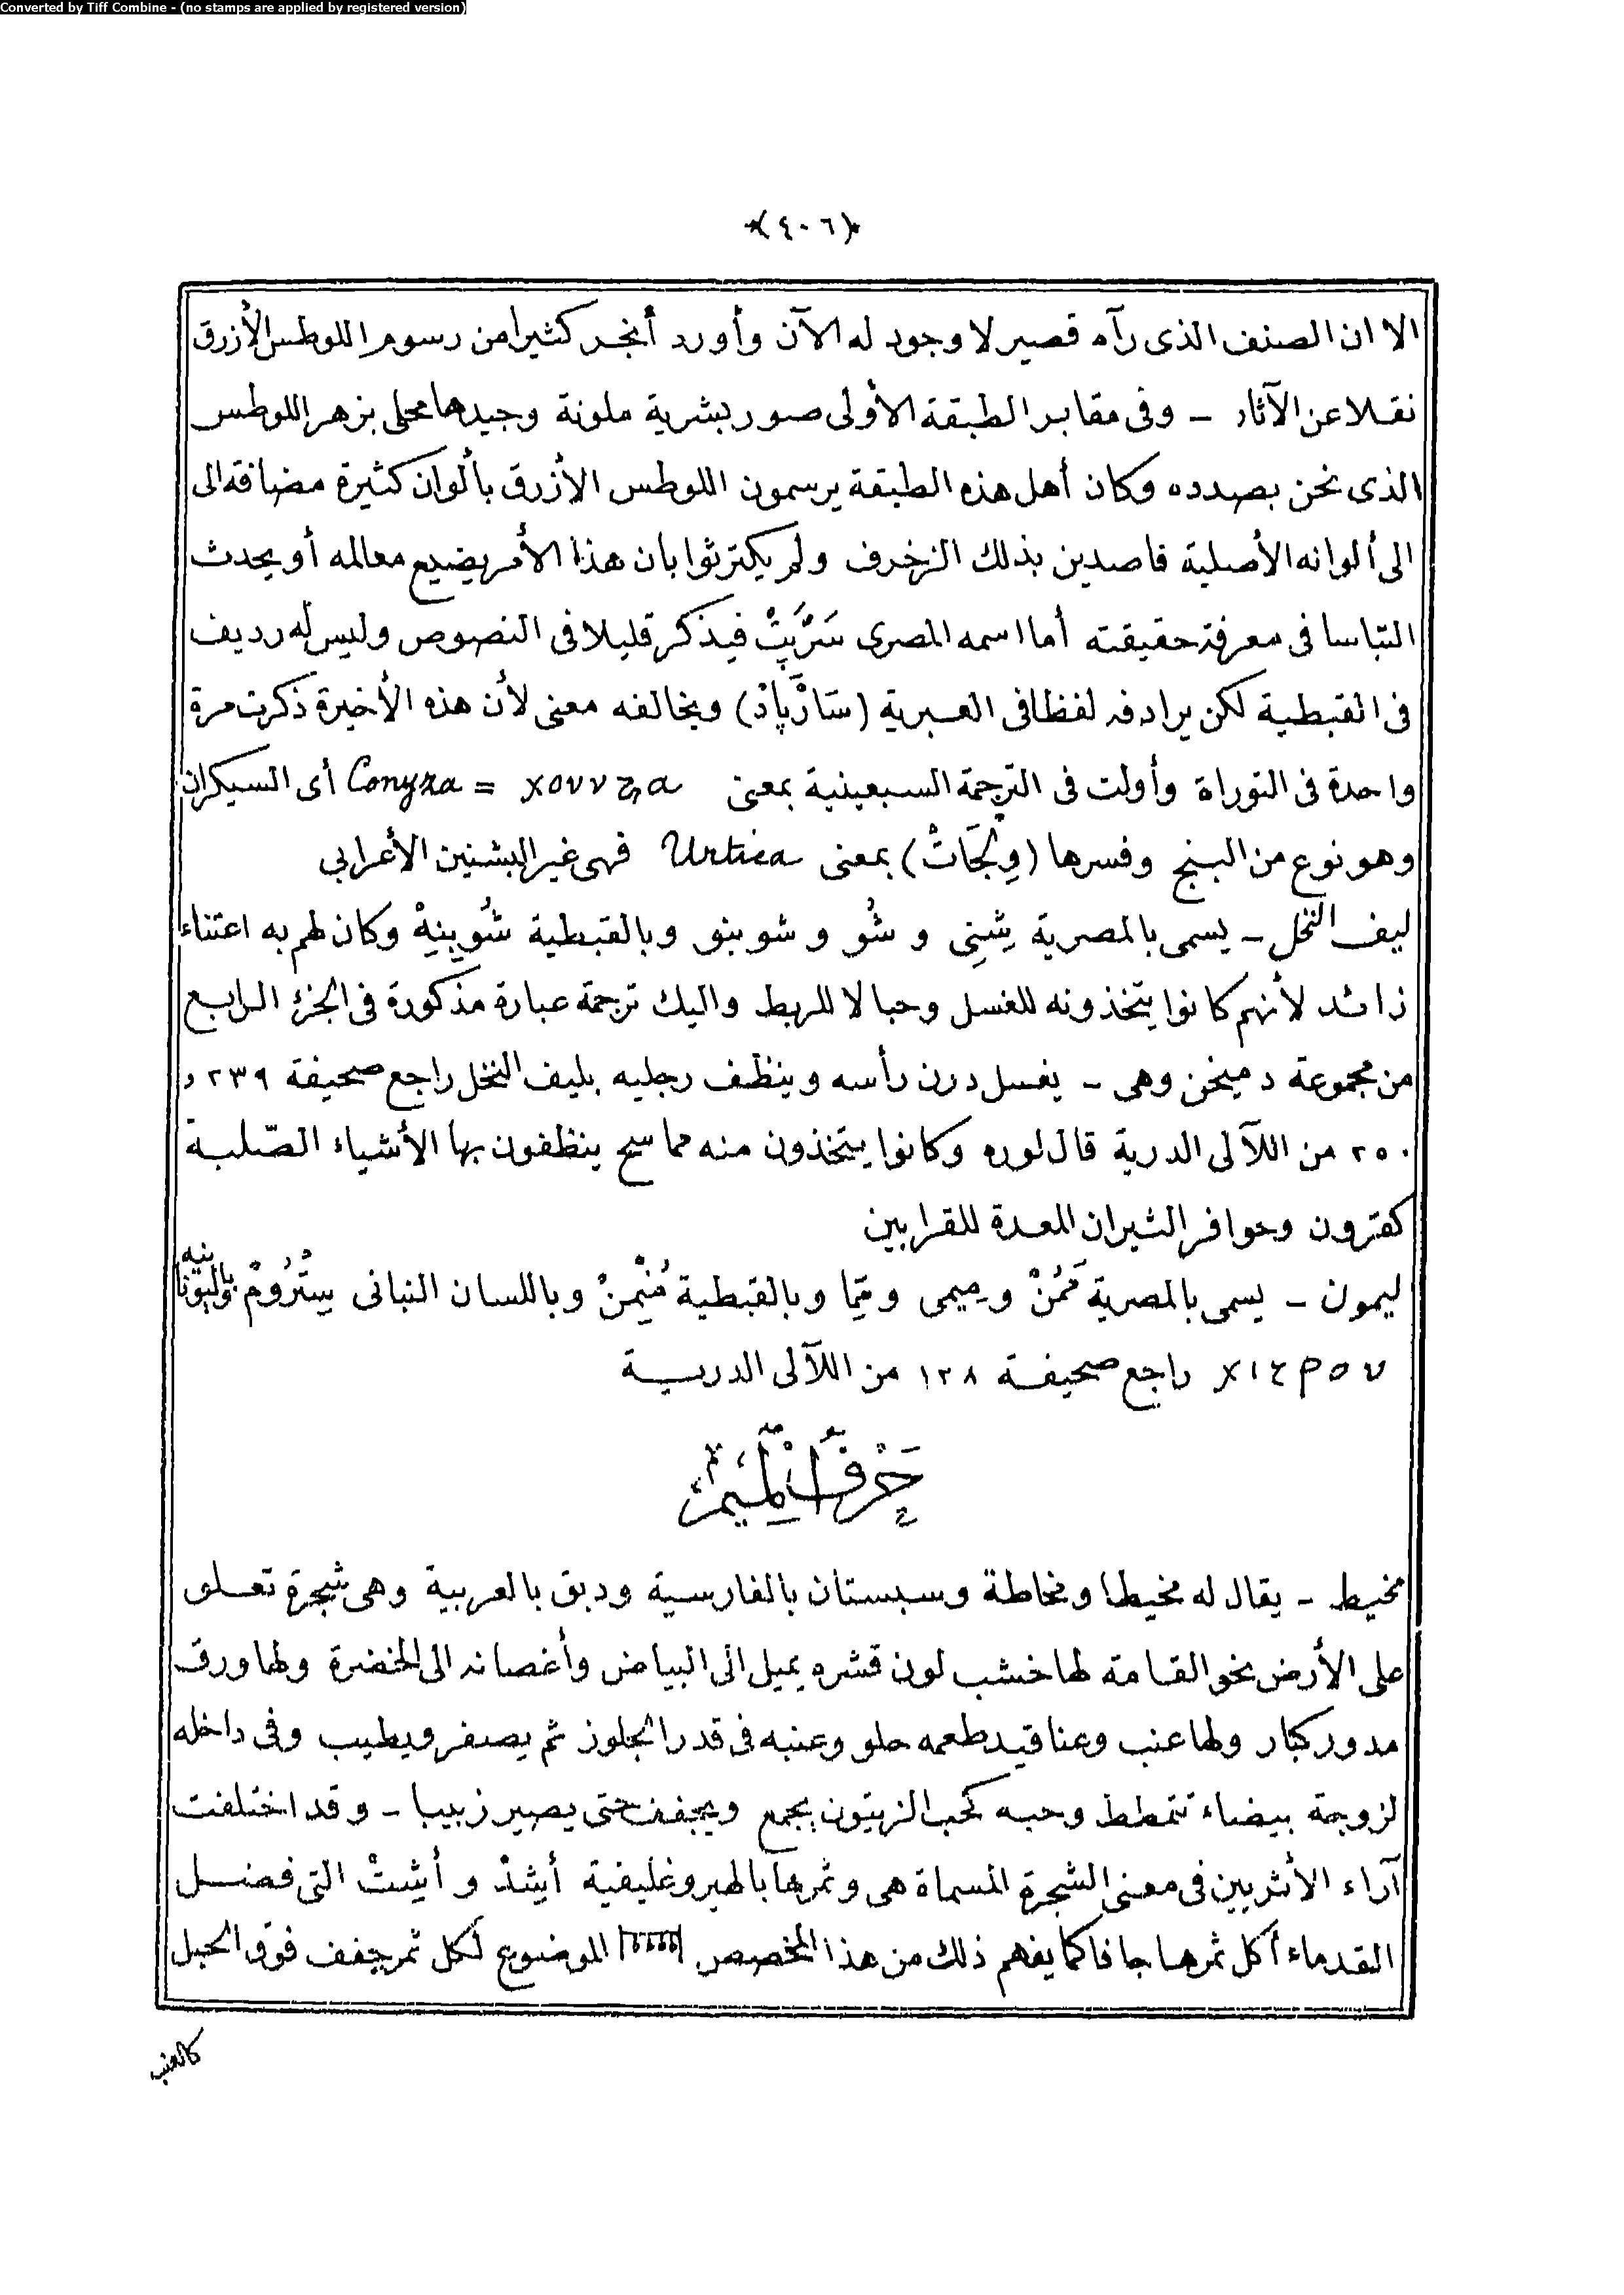 Converted by Tiff Combine - (no stamps are applied by registered version)
﴿٤٠٦﴾
الا ان الصنف الذى رآه قصير لا وجود له الآن وأورد أنجر كثيرا من رسوم اللوطس الأزرق
نقلا عن الآثار - وفى مقابر الطبقة الأولى صور بشرية ملونة وجيدها محلى بزهر اللوطس
الذى نحن بصدده وكان أهل هذه الطبقة يرسمون اللوطس الأزرق بألوان كثيرة مضافة الى
الى ألوانه الأصلية قاصدين بذلك الزخرف ولم يكترثوا بان هذا الأمر يضيع معالمه أو يحدث
التباسا فى معرفة حقيقته أما اسمه المصرى سَرْپِتْ فيذكر قليلا فى النصوص وليس له رديف
فى القبطية لكن يرادفه لفظا فى العبرية (سَارْپَادْ) ويخالفه معنى لأن هذه الأخيرة ذكرت مرة
واحدة فى التوراة وأولت فى الترجمة السبعينية بمعنى Conyza = χονυζα أى السيكران
وهو نوع من البنج وفسرها (وِلْجَاتْ) بمعنى Urtica فهى غير البشنين الأعرابي
ليف النخل - يسمى بالمصرية شِنِى و شُو و شوبنو وبالقبطية شُوبِنِهْ وكان لهم به اعتناء
زائد لأنهم كانوا يتخذونه للغسل وحبالا للربط واليك ترجمة عبارة مذكورة فى الجزء الرابع
من مجموعة دميخن وهى - يغسل درن رأسه وينظف رجليه بليف النخل راجع صحيفة ٢٣٩ و
٢٥٠ من اللآلى الدرية قال لوره وكانوا يتخذون منه مماسح ينظفون بها الأشياء الصّلبة
كقرون وحوافر الثيران المعدة للقرابين
ليمون - يسمى بالمصرية مَمُنْ و مِيمى و مِمَّا وبالقبطية مُنْمِنْ وباللسان النباتى سِتْرُومْ وباليونانيه
χιτρον راجع صحيفة ١٢٨ من اللآلى الدريـة
حَرْفُ الْمِيمْ
مخيط - يقال له مخيطا ومخاطة وسبستان بالفارسية ودبق بالعربية وهى شجرة تعلو
على الأرض نحو القامة لها خشب لون قشره يميل الى البياض وأغصانه الى الخضرة ولها ورق
مدور كبار ولها عنب وعناقيد طعمه حلو وعنبه فى قدر الجلوز ثم يصفر ويطيب وفى داخله
لزوجة بيضاء تتمطط وحبه كحب الزيتون يجمع ويجفف حتى يصير زبيبا - وقد اختلفت
آراء الأثريين فى معنى الشجرة المسماة هى وثمرها بالهيروغليفية أيشِدْ و أيشِتْ التى فضل
القدماء أكل ثمرها جافا كما يفهم ذلك من هذا المخصص الموضوع لكل ثمر جفف فوق الحبل
كالعنب